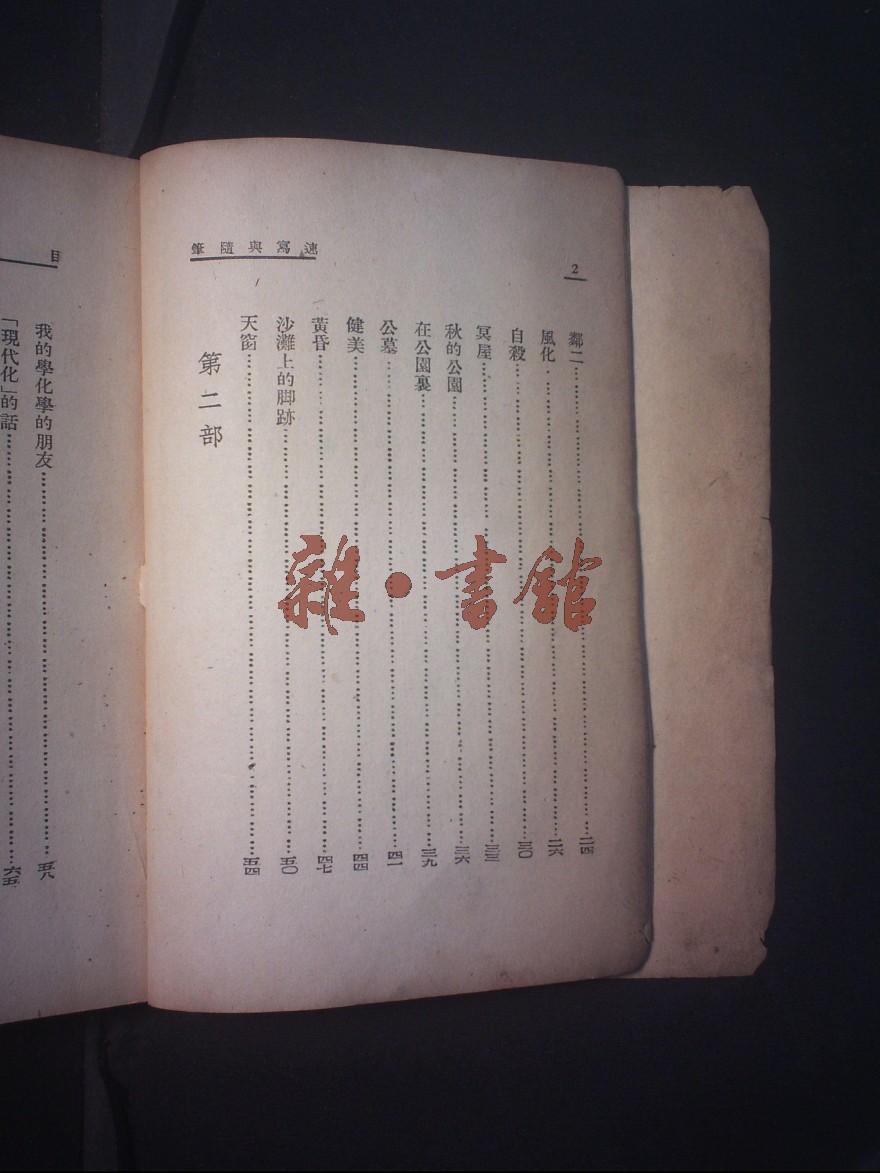 速寫與隨筆
2
鄰二……二四
風化……二六
自殺……三〇
冥屋……三三
秋的公園……三六
在公園裏……三九
公墓……四一
健美……四四
黃昏……四七
沙灘上的脚跡……五〇
天窗……五四
第二部
目
我的學化學的朋友……五八
「現代化」的話……六五
雜·書館